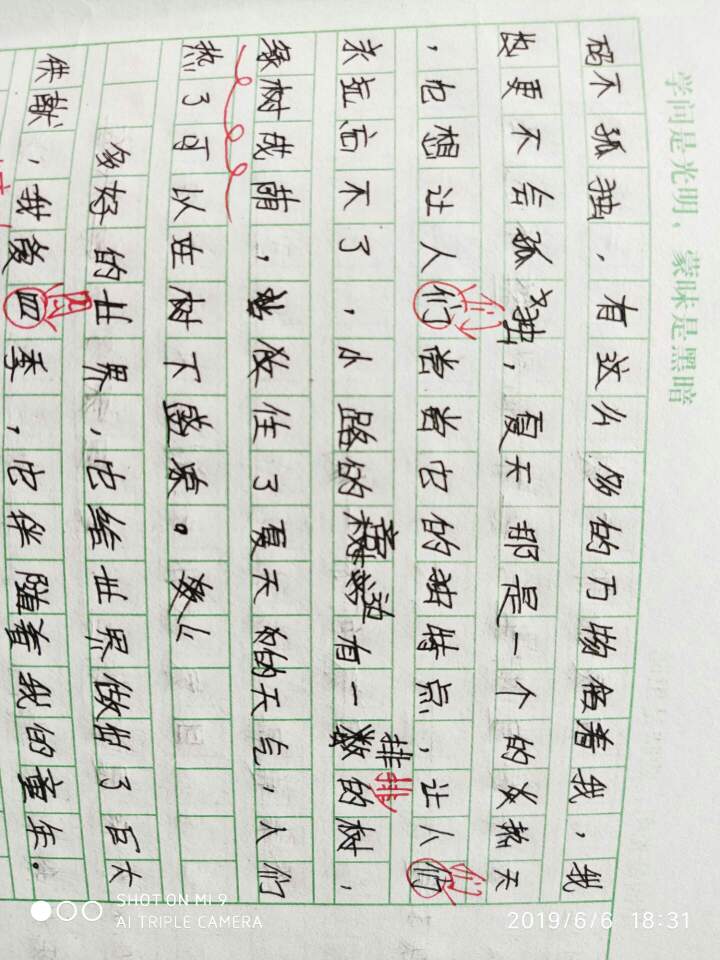 学问是光明，蒙昧是黑暗
不孤独，有这么多的万物陪着我，我
更不会孤独，夏天那是一个的炎热天
，也想让人们尝尝它的独特点，让人们
永远忘不了，小路的旁边有一排排的树，
绿树成荫，放住了夏天的天气，人们
热了可以在树下盛凉。
多好的世界，它给世界做出了巨大
供献，我爱四季，它伴随着我的童年。
SHOT ON MI 9
AI TRIPLE CAMERA
2019/6/6 18:31